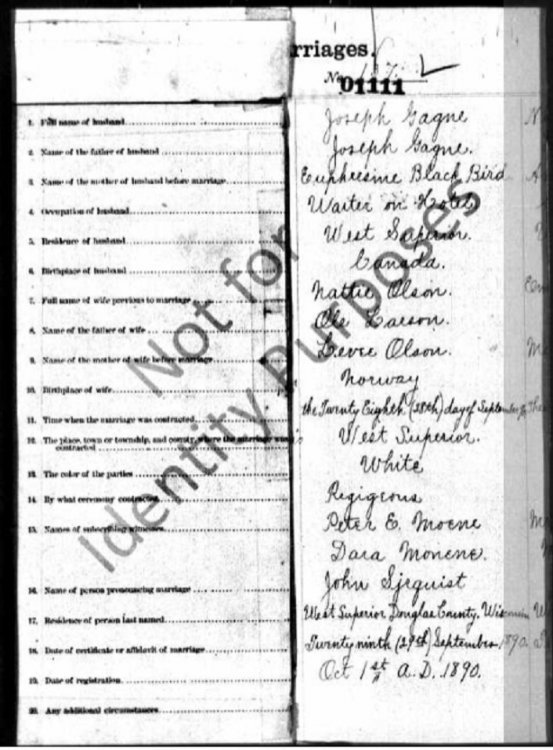 rriages.
No. 01111
1. Full name of husband Joseph Gagne
2. Name of the father of husband Joseph Gagne.
3. Name of the mother of husband before marriage Euphresine Black Bird
4. Occupation of husband Waiter in Hotel
5. Residence of husband West Superior.
6. Birthplace of husband Canada.
7. Full name of wife previous to marriage Nattie Olson.
8. Name of the father of wife Ole Larson.
9. Name of the mother of wife before marriage Olson.
10. Birthplace of wife Norway
11. Time when the marriage was contracted the Twenty Eighth (28th) day of September
12. The place, town or township, and county, where the marriage was contracted West Superior.
13. The color of the parties White
14. By what ceremony contracted Regigeous
15. Names of subscribing witnesses Peter E. Moene
Dara Monene.
16. Name of person pronouncing marriage John Sjequist
17. Residence of person last named West Superior Douglas County, Wisconsin
18. Date of certificate or affidavit of marriage Twenty ninth (29th) September 1890.
19. Date of registration Oct 1st A.D. 1890.
20. Any additional circumstances
Not for
Identity Purposes